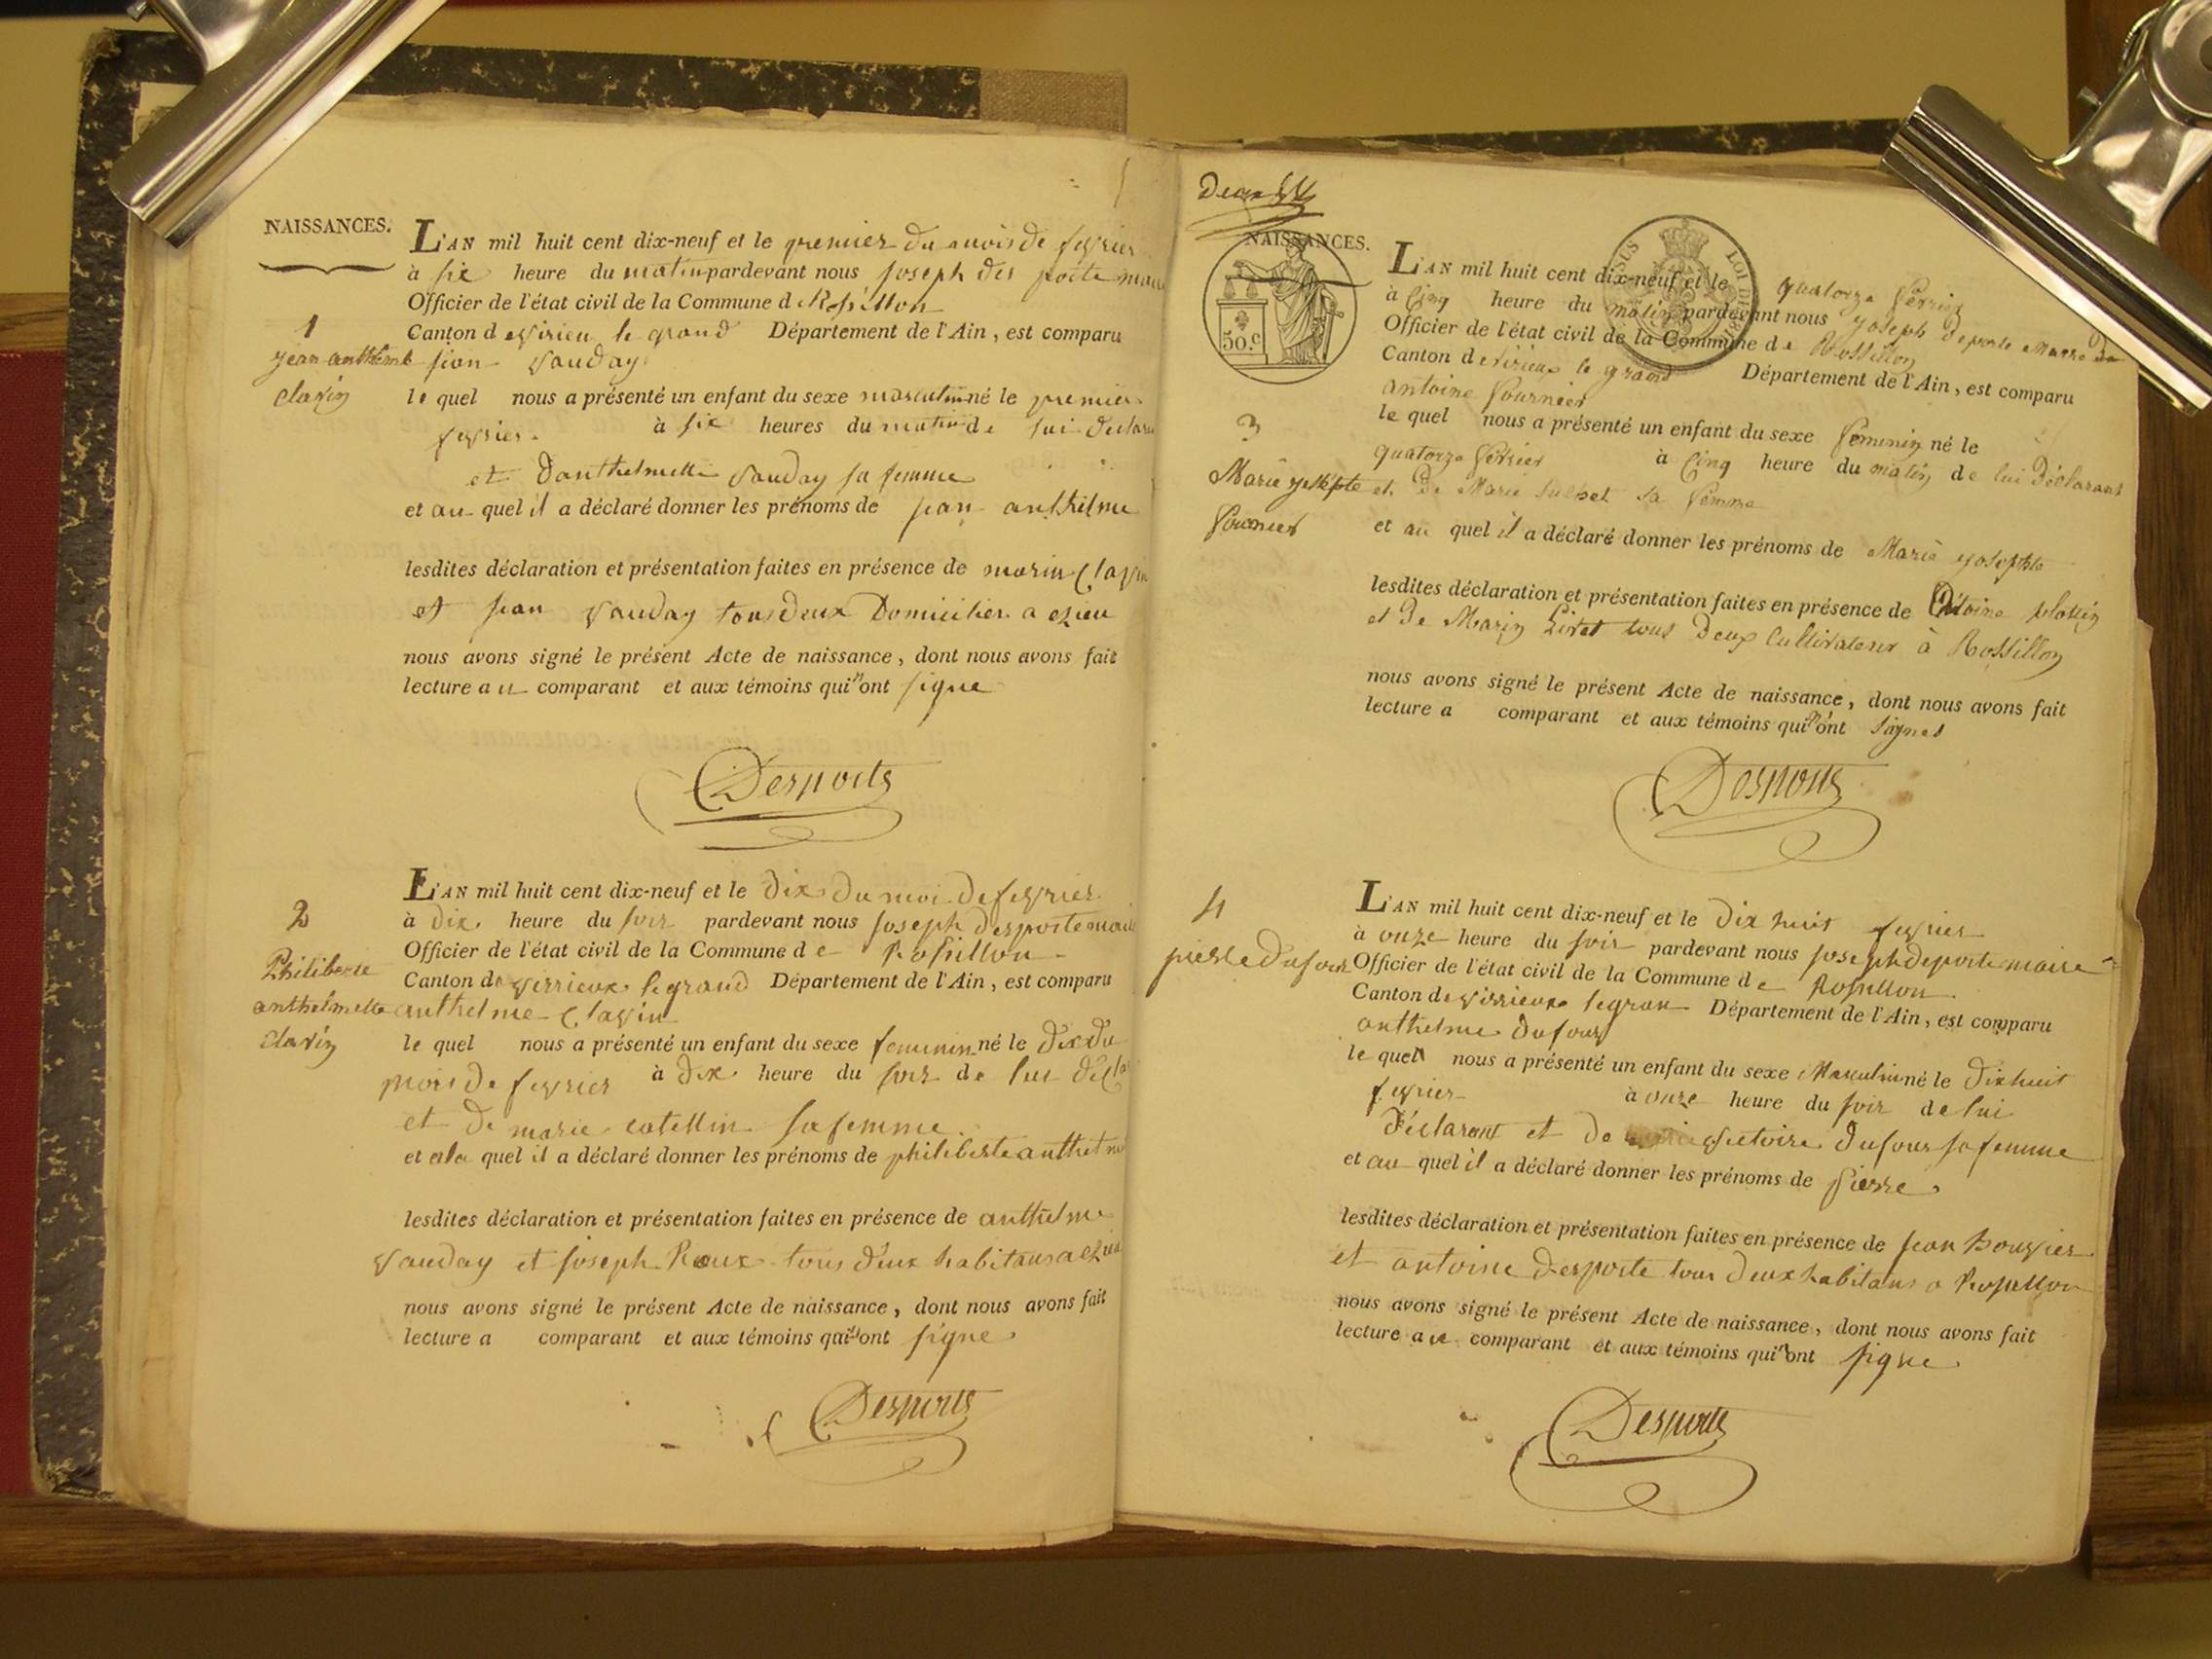 NAISSANCES.
L'AN mil huit cent dix-neuf et le premier du mois de fevrier
à six heure du matin pardevant nous joseph des porte maire
Officier de l'état civil de la Commune de Rossillon
1
Canton de virieu le grand Département de l'Ain, est comparu
jean anthelme jean vauday
clavin
le quel nous a présenté un enfant du sexe masculin né le premier
fevrier à six heures du matin de lui declara
et danthelmette vauday sa femme
et au quel il a déclaré donner les prénoms de jean anthelme
lesdites déclaration et présentation faites en présence de marin clavin
et jean vauday tous deux Domicilier a ezieu
nous avons signé le présent Acte de naissance, dont nous avons fait
lecture au comparant et aux témoins qui n'ont signe
Desporte
L'AN mil huit cent dix-neuf et le dix du moi de fevrier
2
à dix heure du soir pardevant nous joseph desporte maire
Officier de l'état civil de la Commune de Rossillon
Philiberte
Canton de virrieux le grand Département de l'Ain, est comparu
anthelmette anthelme clavin
clavin
le quel nous a présenté un enfant du sexe feminin né le dix du
mois de fevrier à dix heure du soir de lui décla
et de marie catellin sa femme
et ala quel il a déclaré donner les prénoms de philiberte anthelm
lesdites déclaration et présentation faites en présence de anthelme
vauday et joseph Roux tous deux habitans a ezieu
nous avons signé le présent Acte de naissance, dont nous avons fait
lecture a comparant et aux témoins qui n'ont signe
Desporte
NAISSANCES.
50.c
LOI DE 1816
L'AN mil huit cent dix-neuf et le quatorze Février
à cinq heure du matin pardevant nous Joseph Deporte Maire
Officier de l'état civil de la Commune de Rossillon
Canton de virieux le grand Département de l'Ain, est comparu
antoine fournier
3
le quel nous a présenté un enfant du sexe féminin né le
quatorze Février à cinq heure du matin de lui Déclarant
Marie josephte et de Marie sa femme
fournier
et au quel il a déclaré donner les prénoms de Marie josephte
lesdites déclaration et présentation faites en présence de
et de Marin tous deux Cultivateur à Rossillon
nous avons signé le présent Acte de naissance, dont nous avons fait
lecture a comparant et aux témoins qui n'ont signer
Desporte
L'AN mil huit cent dix-neuf et le dix huit fevrier
4
à onze heure du soir pardevant nous joseph deporte maire
pierre Dufour
Officier de l'état civil de la Commune de Rossillon
Canton de virrieux le gran Département de l'Ain, est comparu
anthelme dufour
le quel nous a présenté un enfant du sexe Masculin né le dix huit
fevrier à onze heure du soir de lui
déclarant et de victoire dufour sa femme
et au quel il a déclaré donner les prénoms de pierre
lesdites déclaration et présentation faites en présence de jean bouvier
et antoine desporte tous deux habitans a Rossillon
nous avons signé le présent Acte de naissance, dont nous avons fait
lecture au comparant et aux témoins qui n'ont signe
Desporte